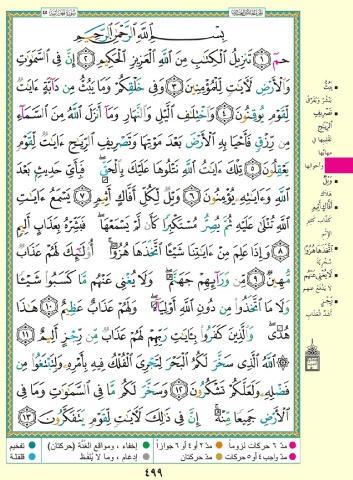 بِسْمِ اللَّهِ الرَّحْمَٰنِ الرَّحِيمِ
حمٓ ۝١ تَنزِيلُ الْكِتَٰبِ مِنَ اللَّهِ الْعَزِيزِ الْحَكِيمِ ۝٢ إِنَّ فِي السَّمَٰوَٰتِ
وَالْأَرْضِ لَءَايَٰتٍ لِّلْمُؤْمِنِينَ ۝٣ وَفِي خَلْقِكُمْ وَمَا يَبُثُّ مِن دَآبَّةٍ ءَايَٰتٌ
لِّقَوْمٍ يُوقِنُونَ ۝٤ وَاخْتِلَٰفِ الَّيْلِ وَالنَّهَارِ وَمَآ أَنزَلَ اللَّهُ مِنَ السَّمَآءِ
مِن رِّزْقٍ فَأَحْيَا بِهِ الْأَرْضَ بَعْدَ مَوْتِهَا وَتَصْرِيفِ الرِّيَٰحِ ءَايَٰتٌ لِّقَوْمٍ
يَعْقِلُونَ ۝٥ تِلْكَ ءَايَٰتُ اللَّهِ نَتْلُوهَا عَلَيْكَ بِالْحَقِّ ۖ فَبِأَيِّ حَدِيثٍۭ بَعْدَ
اللَّهِ وَءَايَٰتِهِۦ يُؤْمِنُونَ ۝٦ وَيْلٌ لِّكُلِّ أَفَّاكٍ أَثِيمٍ ۝٧ يَسْمَعُ ءَايَٰتِ
اللَّهِ تُتْلَىٰ عَلَيْهِ ثُمَّ يُصِرُّ مُسْتَكْبِرًا كَأَن لَّمْ يَسْمَعْهَا ۖ فَبَشِّرْهُ بِعَذَابٍ أَلِيمٍ
۝٨ وَإِذَا عَلِمَ مِنْ ءَايَٰتِنَا شَيْـًٔا اتَّخَذَهَا هُزُوًا ۚ أُو۟لَٰٓئِكَ لَهُمْ عَذَابٌ
مُّهِينٌ ۝٩ مِّن وَرَآئِهِمْ جَهَنَّمُ ۖ وَلَا يُغْنِي عَنْهُم مَّا كَسَبُوا۟ شَيْـًٔا
وَلَا مَا اتَّخَذُوا۟ مِن دُونِ اللَّهِ أَوْلِيَآءَ ۖ وَلَهُمْ عَذَابٌ عَظِيمٌ ۝١٠ هَٰذَا
هُدًى ۖ وَالَّذِينَ كَفَرُوا۟ بِـَٔايَٰتِ رَبِّهِمْ لَهُمْ عَذَابٌ مِّن رِّجْزٍ أَلِيمٌ ۝١١
۞ اللَّهُ الَّذِي سَخَّرَ لَكُمُ الْبَحْرَ لِتَجْرِيَ الْفُلْكُ فِيهِ بِأَمْرِهِۦ وَلِتَبْتَغُوا۟ مِن
فَضْلِهِۦ وَلَعَلَّكُمْ تَشْكُرُونَ ۝١٢ وَسَخَّرَ لَكُم مَّا فِي السَّمَٰوَٰتِ وَمَا فِي
الْأَرْضِ جَمِيعًا مِّنْهُ ۚ إِنَّ فِي ذَٰلِكَ لَءَايَٰتٍ لِّقَوْمٍ يَتَفَكَّرُونَ ۝١٣
يَبُثُّ
يَنْشُرُ ويُفَرِّقُ
تَصْرِيفِ
الرِّيَاحِ
تقليبها في
مهابّها
وأحوالها
وَيْلٌ
هلاك
أَفَّاكٍ أَثِيمٍ
كذّاب كثير
الإثم
اتَّخَذَهَا هُزُوًا
سُخرية
لَا يُغْنِي عَنْهُم
لا يدفع عنهم
رِجْزٍ
أشدّ العذاب
مدّ ٦ حركات لزوماً مدّ ٢ أو ٤ أو ٦ جوازاً إخفاء، ومواقع الغُنَّة (حركتان) تفخيم
مدّ واجب ٤ أو ٥ حركات مدّ حركتان إدغام، وما لا يُلفَظ قلقلة
٤٩٩